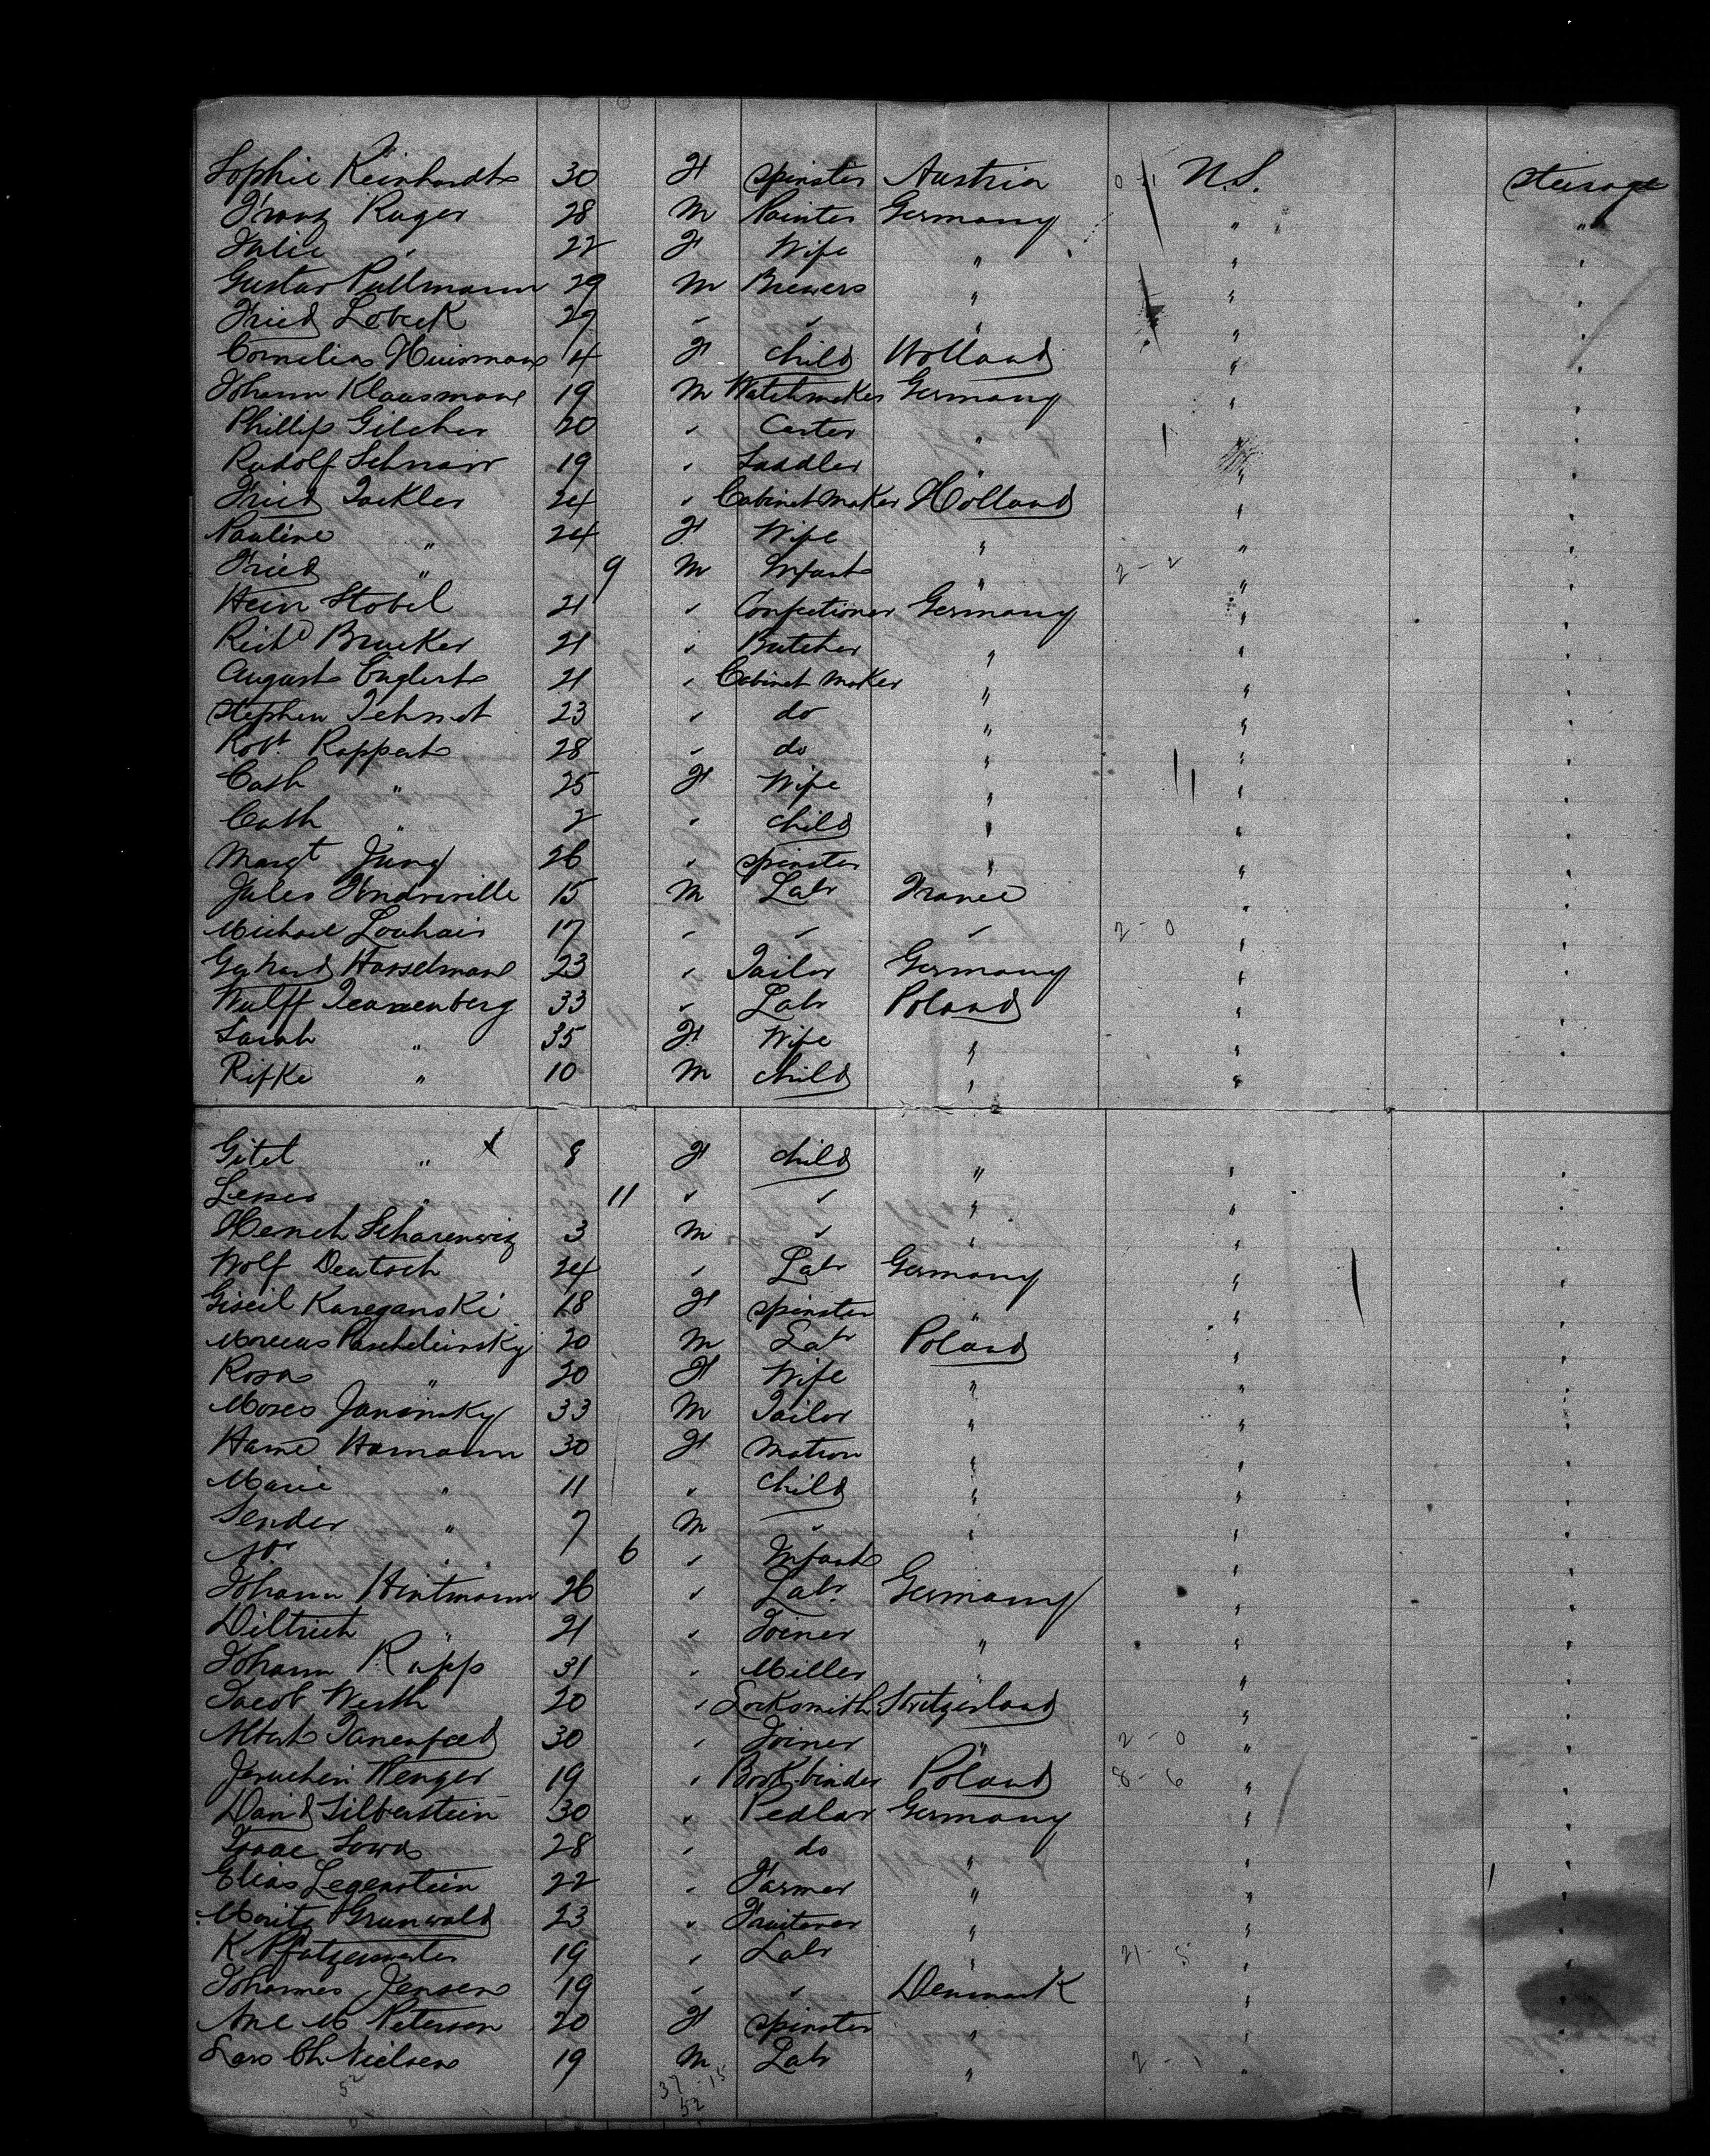 Sophie Reinhardt 30 F Spinster Austria 0-1 U.S. Steerage
Franz Ruger 28 M Painter Germany " "
Julie " 22 F Wife " " "
Gustav Pullmann 29 M Brewers " " "
Fried Lobeck 29 " " " " "
Cornelia Huismans 4 F Child Holland " "
Johann Klaasmane 19 M Watchmaker Germany " "
Phillip Gilcher 20 " Carter " " "
Rudolf Schnarr 19 " Saddler " " "
Fried Tackler 24 " Cabinet Maker Holland " "
Pauline " 24 F Wife " " "
Fried " 9 M Infant " 2-2 " "
Hein Stobel 21 " Confectioner Germany " "
Richd Brucker 21 " Butcher " " "
August Englert 21 " Cabinet Maker " " "
Stephen 23 " do " " "
Robt Rappert 28 " do " " "
Cath " 25 F Wife " " "
Cath " 2 " Child " " "
Margt Jung 26 " Spinster " " "
Jules 15 M Labr France " "
Michael Louhair 17 " " " 2-0 " "
Gerhard Hasselmane 23 " Tailor Germany " "
Wulff 33 " Labr Poland " "
Sarah " 35 F Wife " " "
Rifke " 10 M Child " " "
Gitel " 8 F Child " " "
" 11 " " " " "
Scharenwiz 3 M " " " "
Wolf Deutsch 24 " Labr Germany " "
Giseil Kareganski 18 F Spinster " " "
20 M Labr Poland " "
Rosa " 20 F Wife " " "
Moses Janinsky 33 M Tailor " " "
Hane Hamann 30 F Matron " " "
Marie " 11 " Child " " "
Sender " 7 M " " " "
" 6 " Infant " " "
Johann Hintmann 26 " Labr Germany " "
Diltrich " 21 " Joiner " " "
Johann Rapp 31 " Miller " " "
Jacob Werth 20 " Locksmith Switzerland " "
Albert 30 " Joiner " 2-0 " "
Henger 19 " Bookbinder Poland 8-6 " "
David Silberstein 30 " Pedlar Germany " "
Isaac 28 " do " " "
Elias Legenstein 22 " Farmer " " "
Moritz Grunwald 23 " Fruiterer " " "
K 19 " Labr " 21-5 " "
Johannes Jensen 19 " " Denmark " "
Ane M Peterson 20 F Spinster " " "
Lars Ch Nielsen 19 M Labr " 2-1 " "
52 37-15
52